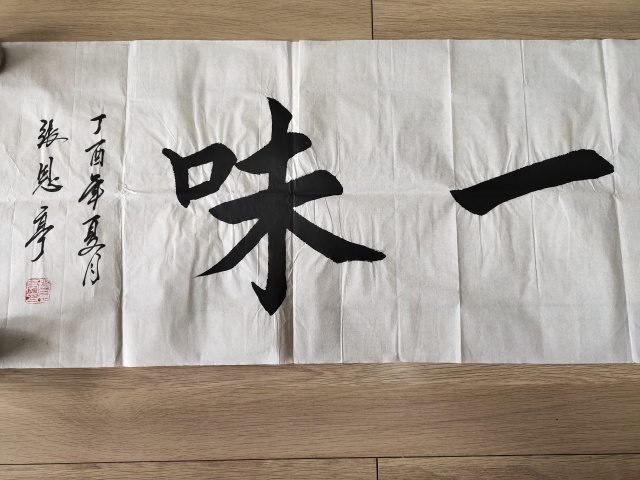 一味
丁酉年夏月
张恩亭